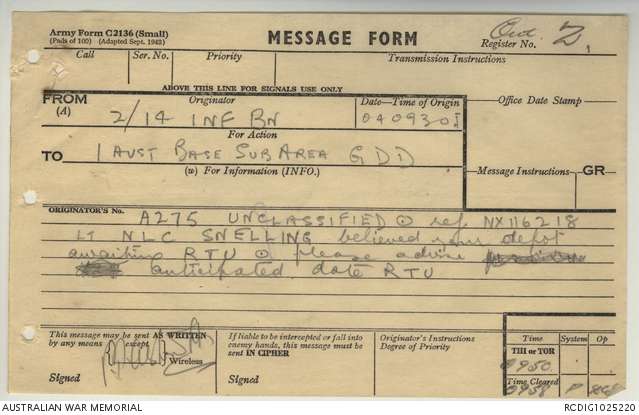 Army Form C2136 (Small)
(Pads of 100) (Adapted Sept. 1942)
MESSAGE FORM
Out
Register No. 2
Call Ser. No. Priority Transmission Instructions
ABOVE THIS LINE FOR SIGNALS USE ONLY
FROM
(A)
Originator
Date—Time of Origin
Office Date Stamp
2/14 INF BN
040930I
For Action
TO
1 AUST BASE SUB AREA GDD
(w) For Information (INFO.)
Message Instructions GR
ORIGINATOR'S No.
A275 UNCLASSIFIED ⊙ ref NX116218
Lt NLC SNELLING believed your depot
awaiting RTU ⊙ please advise
anticipated date RTU
This message may be sent AS WRITTEN
by any means except
Wireless
Signed
If liable to be intercepted or fall into
enemy hands, this message must be
sent IN CIPHER
Signed
Originator's Instructions
Degree of Priority
Time System Op
THI or TOR
0950
Time Cleared
0958 P
AUSTRALIAN WAR MEMORIAL
RCDIG1025220